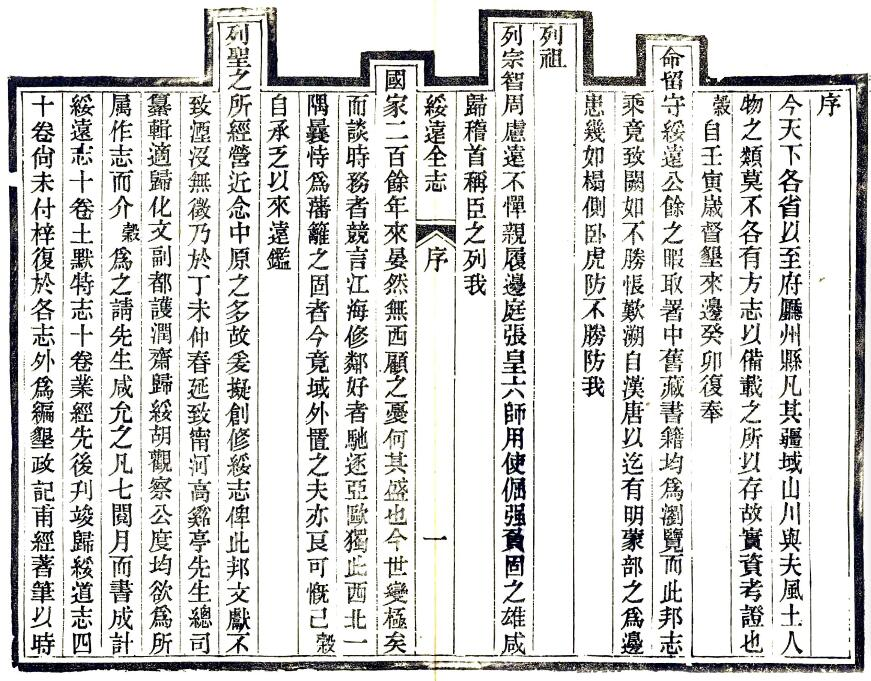 序
今天下各省以至府廳州縣凡其疆域山川與夫風土人
物之類莫不各有方志以備載之所以存故實資考證也
穀自壬寅歲督墾來邊癸卯復奉
命留守綏遠公餘之暇取署中舊藏書籍均爲瀏覽而此邦志
乘竟致闕如不勝悵歎溯自漢唐以迄有明蒙部之爲邊
患幾如榻側卧虎防不勝防我
列祖
列宗智周慮遠不憚親履邊庭張皇六師用使倔强負固之雄咸
歸稽首稱臣之列我
綏遠全志
序
一
國家二百餘年來晏然無西顧之憂何其盛也今世變極矣
而談時務者競言江海修鄰好者馳逐亞歐獨此西北一
隅曩恃爲藩籬之固者今竟域外置之夫亦良可慨已穀
自承乏以來遠鑑
列聖之所經營近念中原之多故爰擬創修綏志俾此邦文獻不
致湮沒無徵乃於丁未仲春延致甯河高鷄亭先生總司
纂輯適歸化文副都護潤齋歸綏胡觀察公度均欲爲所
属作志而介穀爲之請先生咸允之凡七閱月而書成計
綏遠志十卷土默特志十卷業經先後刋竣歸綏道志四
十卷尙未付梓復於各志外爲編墾政記甫經著筆以時